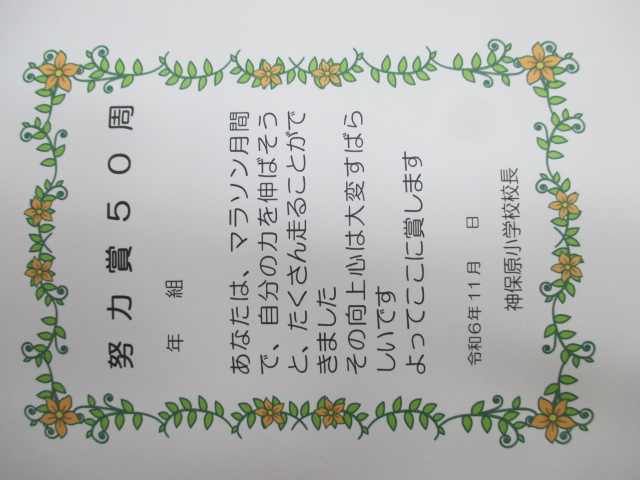 努力賞５０周
年　組
あなたは、マラソン月間
で、自分の力を伸ばそう
と、たくさん走ることがで
きました
その向上心は大変すばら
しいです
よってここに賞します
令和６年１１月　日
神保原小学校校長